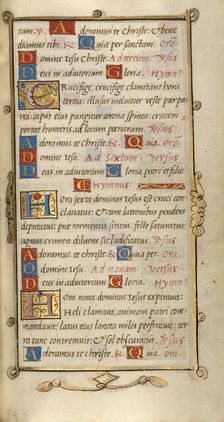 tum. Adoramus te Christe. & bene
dicimus tibi. R Quia per sanctam. Oro
Domine Iesu. Ad tertiam. Versus
Deus in adiutorium Gloria. Hymn9
Crucifige, crucifige clamitant hora
tertia: illusus induitur veste purpu
rea: caput eius pungitur corona spinea: crucem
portat humeris ad locum pœnarum. Versus
Adoramus te Christe. R Quia. Oro
Domine Iesu. Ad Sextam. Versus
Deus in adiutorium Gloria patri et filio.
Hymnus.
Hora sexta dominus Iesus est cruci con
clavatus: Cum latronibus pendens
deputatus: pne tormentis sitiens, felle saturatus
agnus crimen diluens sic ludificatus. Versus
Adoramus te Christe. R Quia per. Oro
Domine Iesu. Ad nonam. Versus
Deus in adiutorium Gloria. Hymn9
Hora nona dominus Iesus expiravit:
Heli clamans, animam patri com
mendavit: latus eius lancea miles perforavit: ter
ra tunc contremuit: & sol obscuravit. Versus
Adoramus te Christe. R Quia. Oro